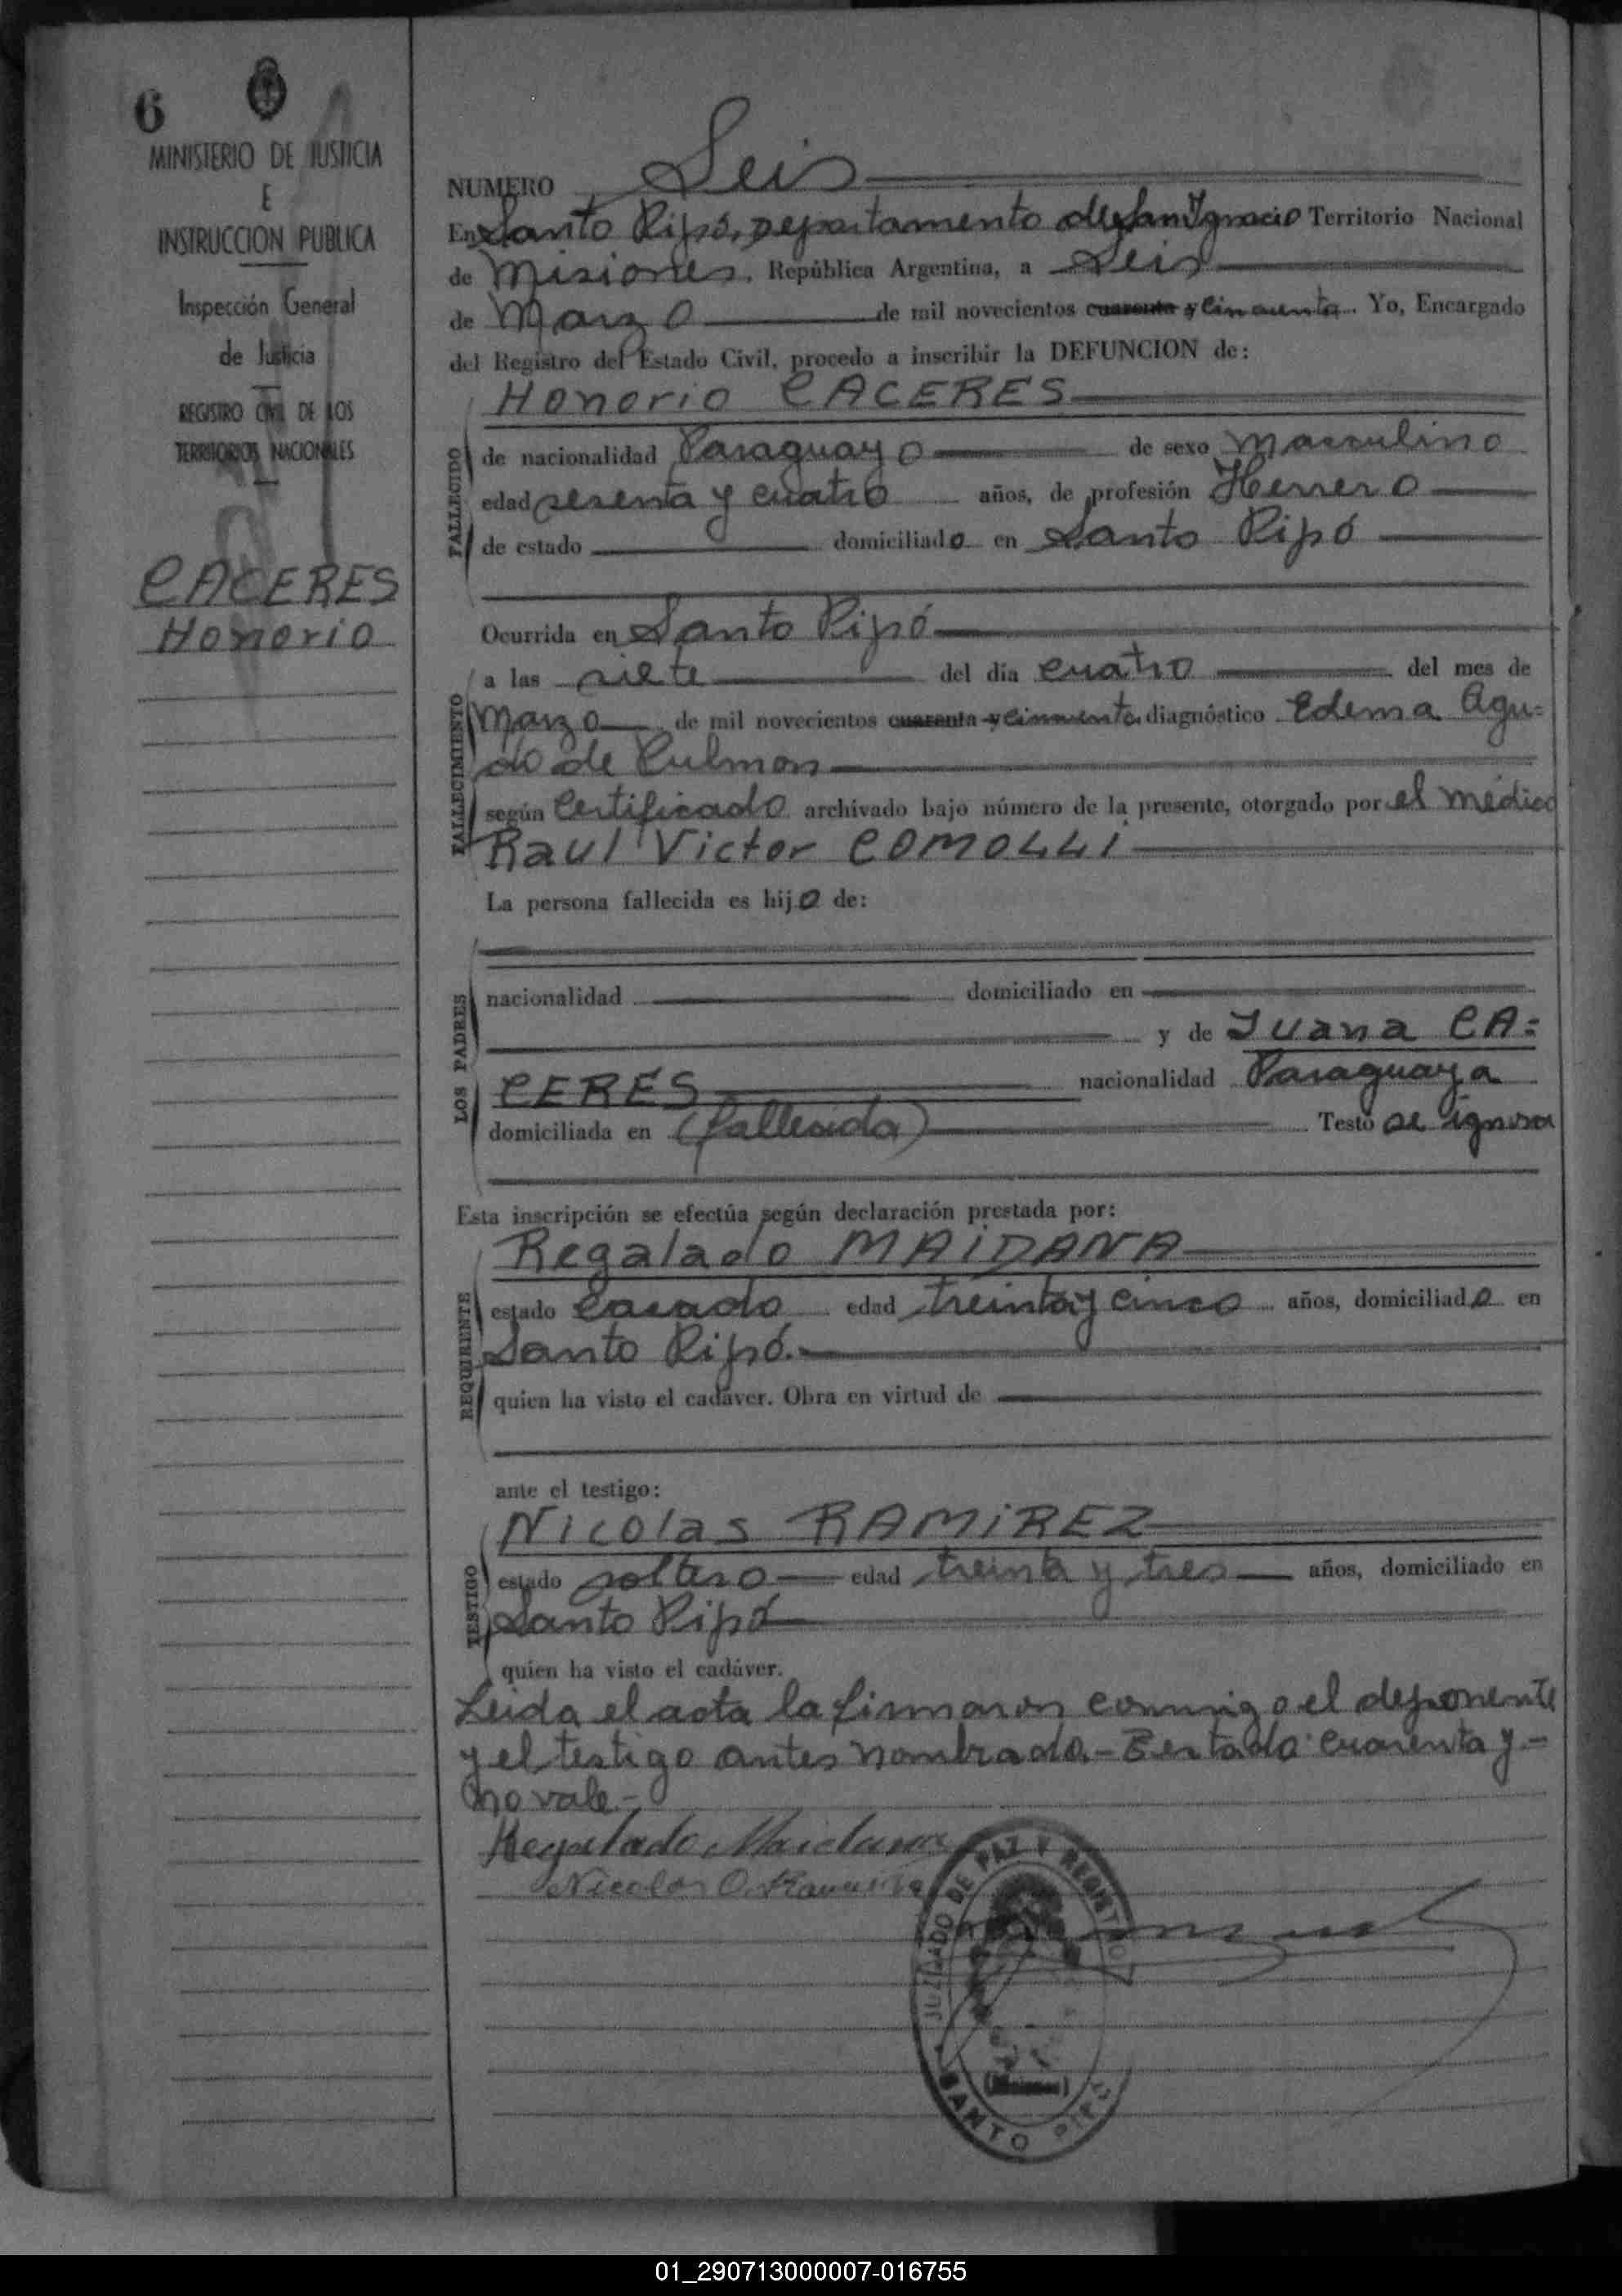 6
MINISTERIO DE JUSTICIA
E
INSTRUCCION PUBLICA
Inspección General
de Justicia
REGISTRO CIVIL DE LOS
TERRITORIOS NACIONALES
CACERES
Honorio
NUMERO Seis
En Santo Pipó, Departamento de San Ignacio Territorio Nacional
de Misiones. República Argentina, a Seis
de Marzo de mil novecientos cuarenta y Cincuenta. Yo, Encargado
del Registro del Estado Civil, procedo a inscribir la DEFUNCION de:
Honorio CACERES
FALLECIDO
de nacionalidad Paraguayo de sexo Masculino
edad sesenta y cuatro años, de profesión Herrero
de estado domiciliado en Santo Pipó
Ocurrida en Santo Pipó
FALLECIMIENTO
a las siete del día cuatro del mes de
Marzo de mil novecientos cuarenta y cincuenta diagnóstico Edema Agu=
do de Pulmon
según Certificado archivado bajo número de la presente, otorgado por el médico
Raul Victor COMOLLi
La persona fallecida es hijo de:
LOS PADRES
nacionalidad domiciliado en
y de Juana CA=
CERES nacionalidad Paraguaya
domiciliada en (fallecida) Testó se ignora
Esta inscripción se efectúa según declaración prestada por:
Regalado MAiDANA
REQUIRENTE
estado Casado edad treinta y cinco años, domiciliado en
Santo Pipó.
quien ha visto el cadáver. Obra en virtud de
ante el testigo:
Nicolas RAMiREZ
TESTIGO
estado soltero edad treinta y tres años, domiciliado en
Santo Pipó
quien ha visto el cadáver.
Leida el acta la firmaron conmigo el deponente
y el testigo antes nombrado.- Testado: cuarenta y -
no vale.-
Regalado Maidana
Nicolas O. Ramirez
JUZGADO DE PAZ Y REGISTRO
SANTO PIPÓ
01_290713000007-016755